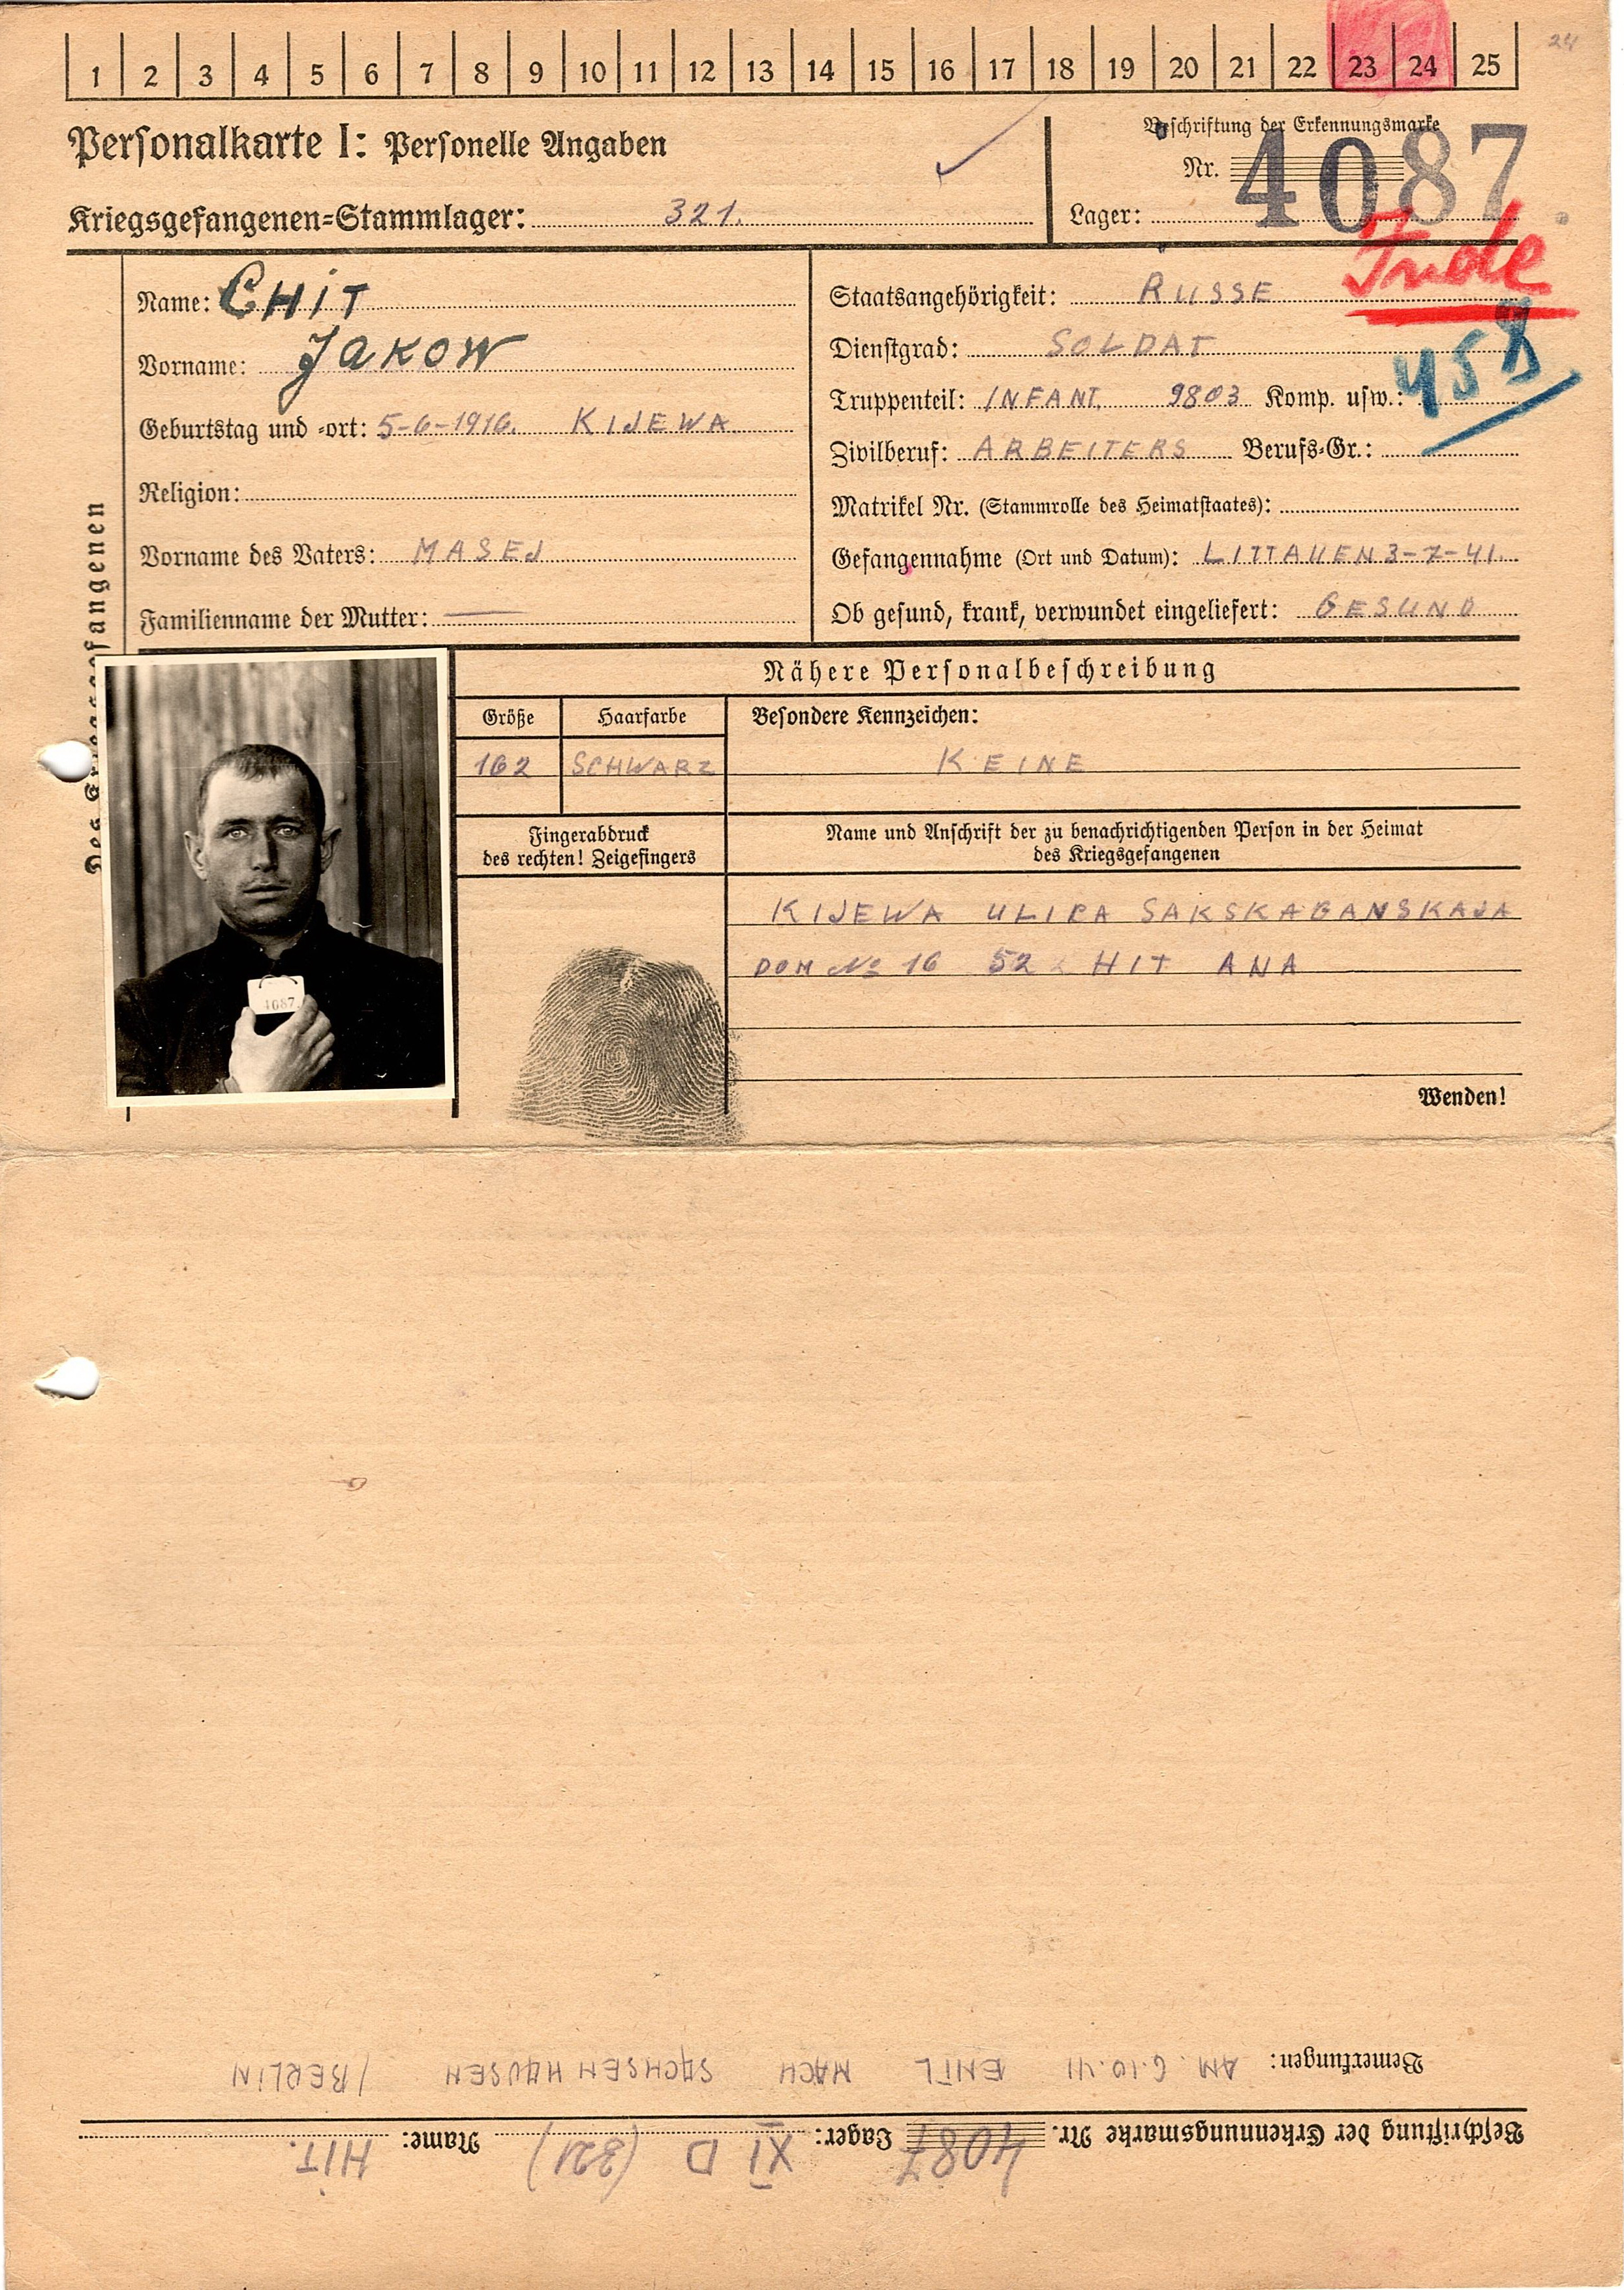 1 2 3 4 5 6 7 8 9 10 11 12 13 14 15 16 17 18 19 20 21 22 23 24 25
24
Personalkarte I: Personelle Angaben
Kriegsgefangenen-Stammlager: 321.
Beschriftung der Erkennungsmarke
Nr. 4087
Lager:
Jude
458
Des Kriegsgefangenen
Name: CHIT
Vorname: JAKOW
Geburtstag und -ort: 5-6-1916. KIJEWA
Religion:
Vorname des Vaters: MASEJ
Familienname der Mutter: —
Staatsangehörigkeit: RUSSE
Dienstgrad: SOLDAT
Truppenteil: INFANT. 9803 Komp. usw.:
Zivilberuf: ARBEITERS Berufs-Gr.:
Matrikel Nr. (Stammrolle des Heimatstaates):
Gefangennahme (Ort und Datum): LITTAUEN 3-7-41.
Ob gesund, krank, verwundet eingeliefert: GESUND
Nähere Personalbeschreibung
Größe Haarfarbe Besondere Kennzeichen:
162 SCHWARZ KEINE
Fingerabdruck
des rechten! Zeigefingers
Name und Anschrift der zu benachrichtigenden Person in der Heimat
des Kriegsgefangenen
KIJEWA ULIPA SAKSKAGANSKAJA
DOM № 16 52 HIT ANA
4087
Wenden!
Beschriftung der Erkennungsmarke Nr. 4087 Lager: XI D (321) Name: HIT.
Bemerkungen: AM 6.10.41 ENTL NACH SACHSENHAUSEN /BERLIN